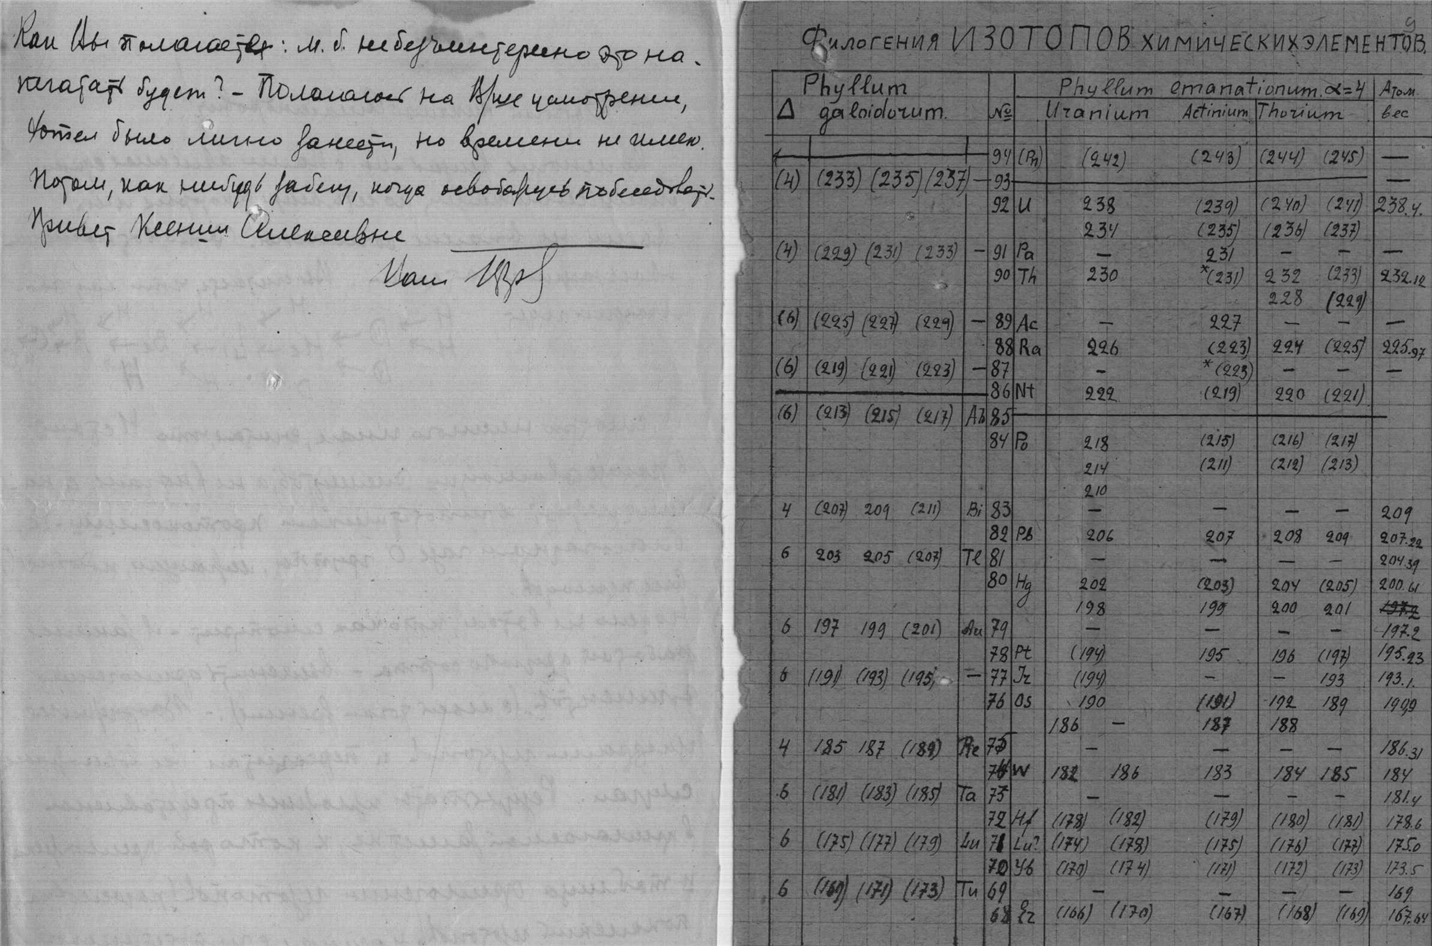 Как Вы полагаете: м.б. небезынтересно это на-
печатать будет? – Полагаюсь на Ваше усмотрение,
Хотел было лично занести, но времени не имею.
Потом, как нибудь забегу, когда освобожусь побеседовать.
Привет Ксении Алексеевне
Ваш
9
Филогения ИЗОТОПОВ ХИМИЧЕСКИХ ЭЛЕМЕНТОВ.
Δ Phyllum galoidorum. № Phyllum emanationum. α=4 Атом. вес
Uranium Actinium Thorium
94 (242) (243) (244) (245) —
(4) (233) (235) (237) — 93 —
92 U 238 (239) (240) (241) 238.4.
234 (235) (236) (237)
(4) (229) (231) (233) — 91 Pa — 231 — — —
90 Th 230 *(231) 232 (233) 232.12
228 (229)
(6) (225) (227) (229) — 89 Ac — 227 — — —
88 Ra 226 (223) 224 (225) 225.97
(6) (219) (221) (223) — 87 — *(223) — — —
86 Nt 222 (219) 220 (221)
(6) (213) (215) (217) Ab 85
84 Po 218 (215) (216) (217)
214 (211) (212) (213)
210
4 (207) 209 (211) Bi 83 — — — — 209
82 Pb 206 207 208 209 207.22
6 203 205 (207) Te 81 — — — — 204.39
80 Hg 202 (203) 204 (205) 200.61
198 199 200 201 197.2
6 197 199 (201) Au 79 — — — — 197.2
78 Pt (194) 195 196 (197) 195.23
6 (191) (193) (195) — 77 Ir (194) — — 193 193.1.
76 Os 190 (191) 192 189 1909
186 — 187 188
4 185 187 (189) Re 75 — — — — 186.31
74 W 182 186 183 184 185 184
6 (181) (183) (185) Ta 73 — — — — 181.4
72 Hf (178) (182) (179) (180) (181) 178.6
6 (175) (177) (179) Lu 71 Lu? (174) (178) (175) (176) (177) 1750
70 Yb (170) (174) (171) (172) (173) 173.5
6 (169) (171) (173) Tu 69 — — — — 169
68 Er (166) (170) (167) (168) (169) 167.64